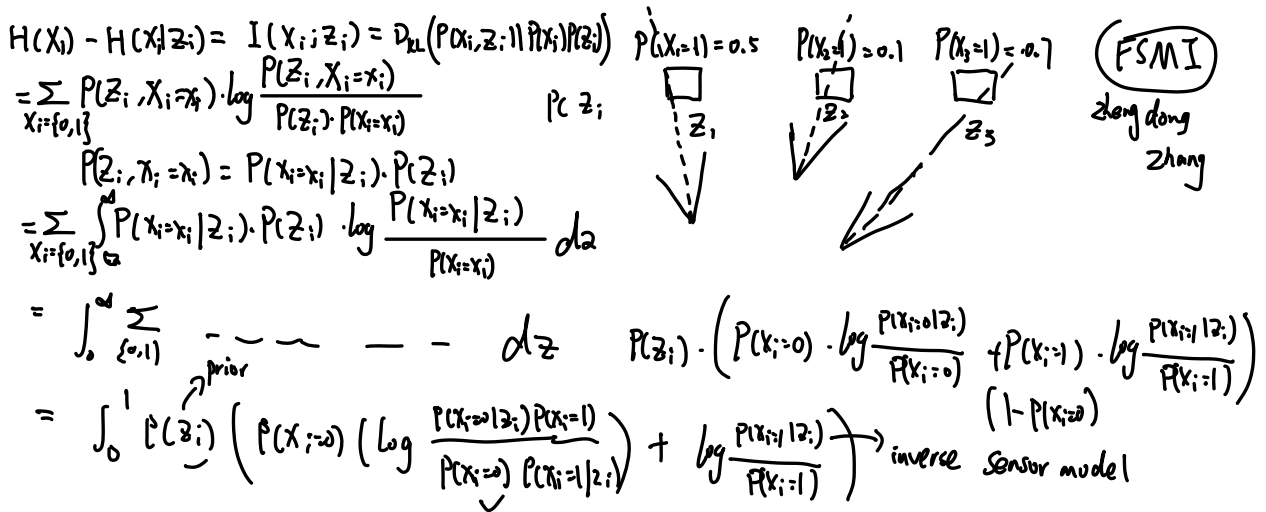 H(Xi) - H(Xi|Zi) = I(Xi;Zi) = D_KL(P(Xi,Zi)||P(Xi)P(Zi))
= ∑_{Xi={0,1}} P(Zi,Xi=xi)·log P(Zi,Xi=xi) / P(Zi)·P(Xi=xi)
P(Zi
P(Zi,Xi=xi) = P(Xi=xi|Zi)·P(Zi)
= ∑_{Xi={0,1}} ∫ P(Xi=xi|Zi)·P(Zi)·log P(Xi=xi|Zi) / P(Xi=xi) dz
= ∫_0^∞ ∑_{{0,1}} - - - - - dz
P(Zi)·(P(Xi=0)·log P(Xi=0|Zi) / P(Xi=0) + P(Xi=1)·log P(Xi=1|Zi) / P(Xi=1))
(1-P(Xi=0)
prior
= ∫_0^1 P(Zi) (P(Xi=0) (log P(Xi=0|Zi)P(Xi=1) / P(Xi=0)P(Xi=1|Zi)) + log P(Xi=1|Zi) / P(Xi=1))
inverse sensor model
P(X1=1)=0.5
P(X2=1)=0.1
P(X3=1)=0.7
Z1
Z2
Z3
FSMI
zheng dong
zhang